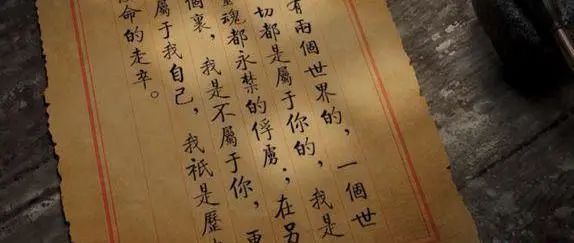 有兩個世界的，一個世
切都是屬于你的，我是
魂都永禁的俘虜；在另
個裏，我是不屬于你，更
屬于我自己，我祇是歷
命的走卒。